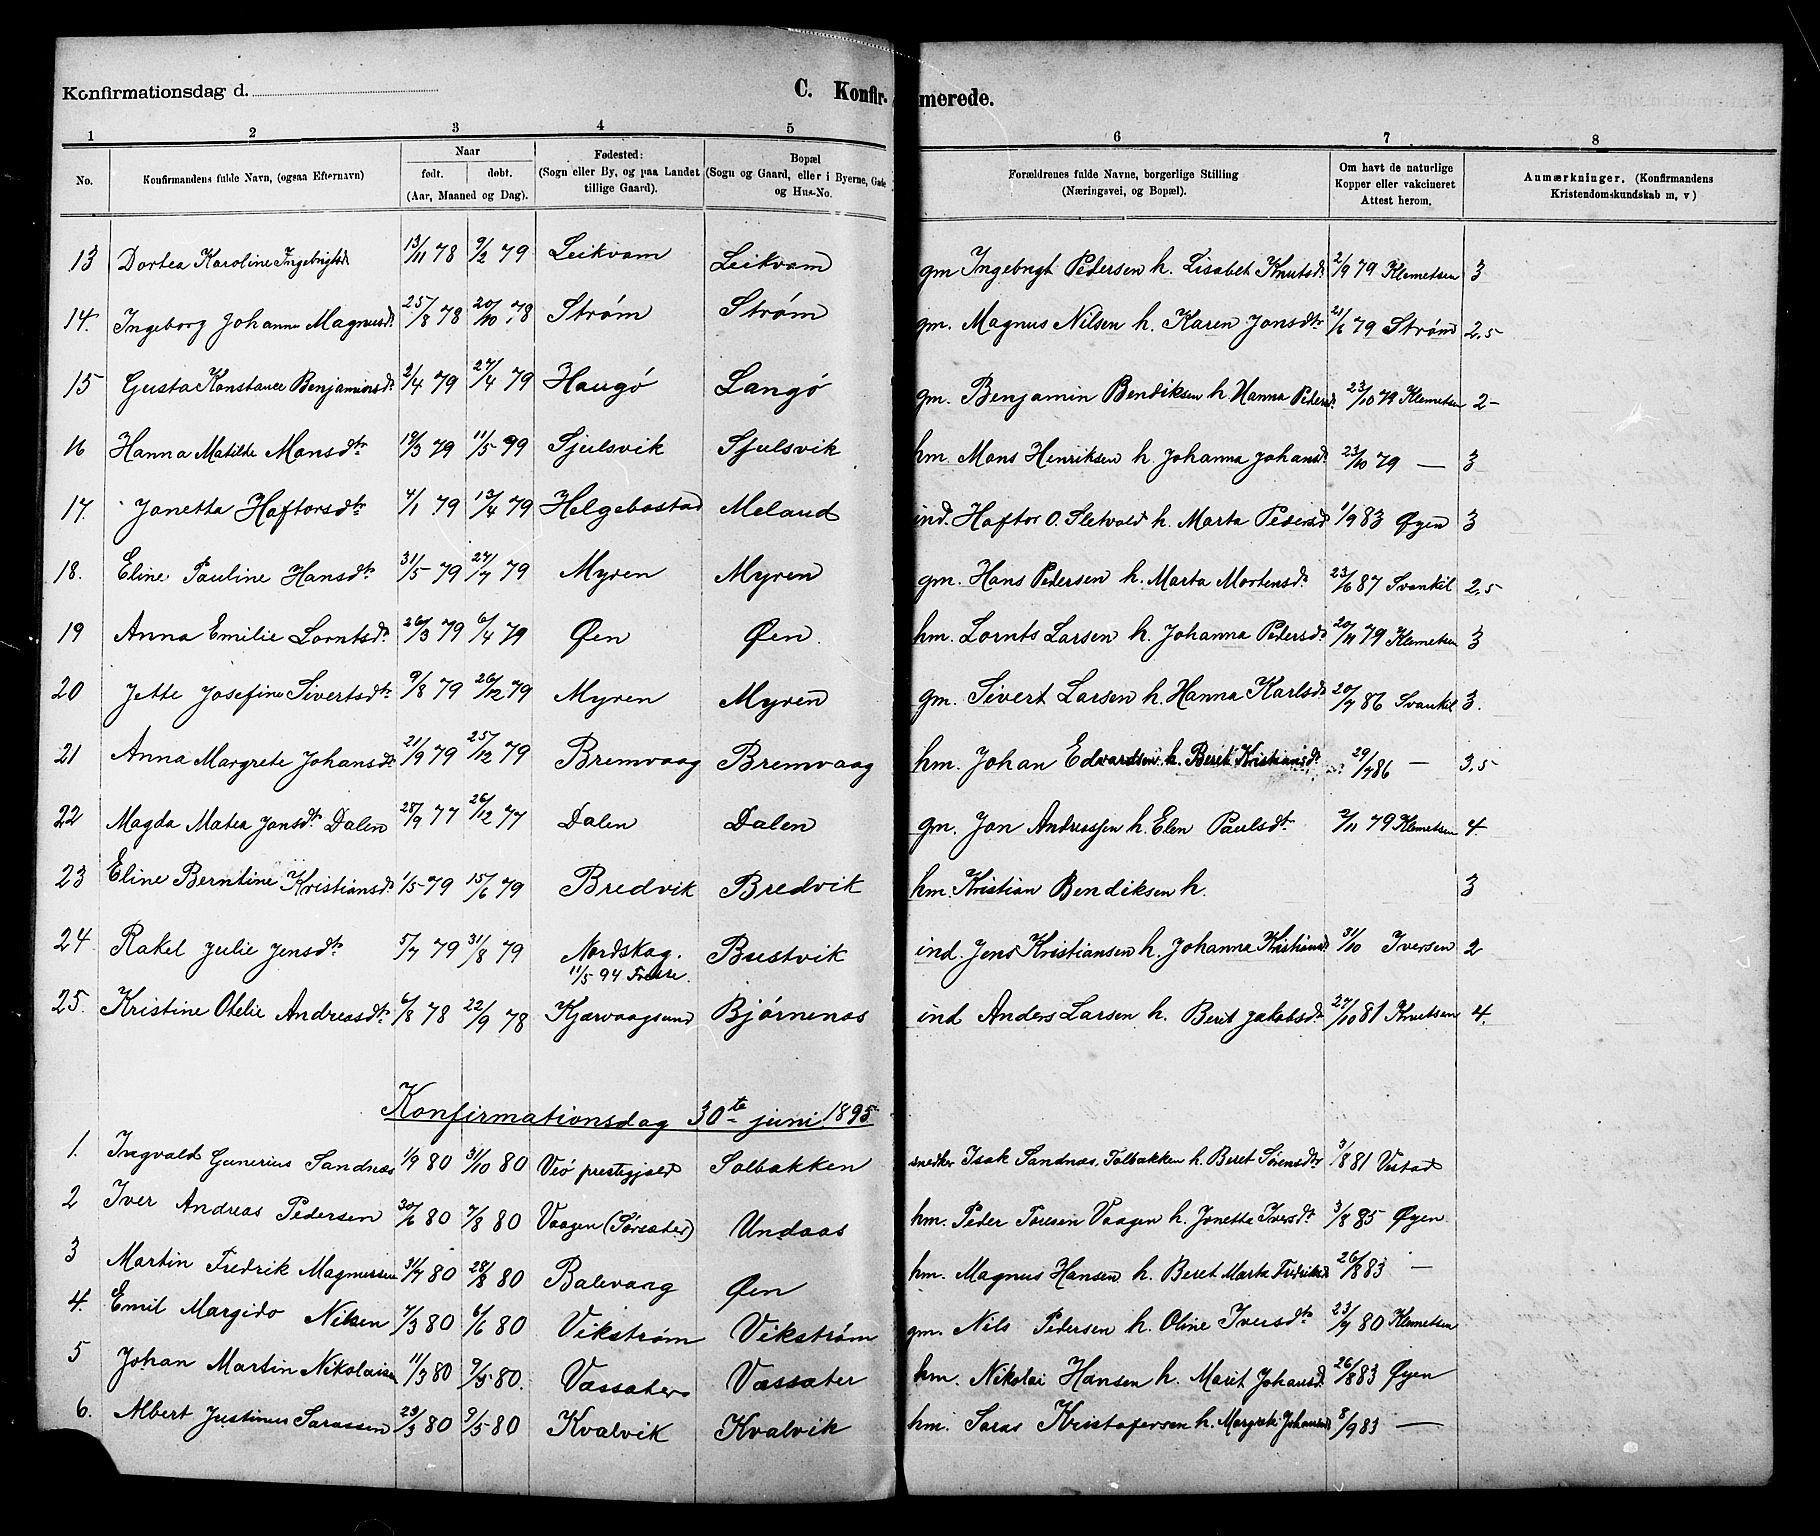 Konfirmationsdag d.
C. Konfir-merede.
1 2 3 4 5 6 7 8
No. Konfirmandens fulde Navn, (ogsaa Efternavn) Naar født. døbt. (Aar, Maaned og Dag). Fødested: (Sogn eller By, og paa Landet tillige Gaard). Bopæl (Sogn og Gaard, eller i Byerne, Gade og Hus-No. Forældrenes fulde Navne, borgerlige Stilling (Næringsvei, og Bopæl). Om havt de naturlige Kopper eller vakcineret Attest herom. Anmærkninger, (Konfirmandens Kristendomskundskab m, v)
13 Dortea Karoline Ingebrigtsd. 13/11 78 9/2 79 Leikvam Leikvam gm Ingebrigt Pedersen h. Lisabet Knutsd. 2/9 79 Klemetsen 3
14. Ingeborg Johanne Magnusd. 25/8 78 20/10 78 Strøm Strøm gm. Magnus Nilsen h. Karen Jonsdtr 21/6 79 Strøm 2,5
15 Gusta Konstance Benjaminsd. 2/4 79 27/4 79 Haugö Langö gm. Benjamin Bendiksen h. Hanna Pedersd. 23/10 79 Klemetsen 2-
16 Hanna Matilde Monsdtr 19/3 79 11/5 79 Sjulsvik Sjulsvik hm. Mons Henriksen h. Johanna Johansd. 23/10 79 — 3
17. Janetta Haftorsdtr 4/1 79 13/4 79 Helgebostad Meland ind. Haftor O. Sletvold h. Marta Pedersd 1/9 83 Øyen 3
18. Eline Pauline Hansdtr 31/5 79 27/7 79 Myren Myren gm. Hans Pedersen h. Marta Mortensd. 23/6 87 Svankil 2,5
19 Anna Emilie Lorntsd. 26/3 79 6/4 79 Øen Øen. hm. Lornts Larsen h. Johanna Pedersd. 20/11 79 Klemetsen 3
20 Jette Josefine Sivertsdtr 9/8 79 26/12 79 Myren Myren gm. Sivert Larsen h. Hanna Karlsd. 20/7 86 Svankil 3.
21 Anna Margrete Johansd. 21/9 79 25/12 79 Bremvaag Bremvaag hm. Johan Edvardsen h. Berit Kristiansd. 29/7 86 — 3,5
22 Magda Matea Jonsdtr Dalen 28/9 77 26/12 77 Dalen Dalen gm. Jon Andreassen h. Elen Paulsdtr 2/11 79 Klemetsen 4
23 Eline Berntine Kristiansd. 1/5 79 15/6 79 Bredvik Bredvik hm. Kristian Bendiksen h. 3
24. Rakel Julie Jensdtr 5/7 79 31/8 79 Nordskag. Bustvik ind. Jens Kristiansen h. Johanna Kristiansd 31/10 Iversen 2
11/5 94
25. Kristine Otelie Andreasdtr 6/8 78 22/9 78 Kjærvaagsund Bjørnenas ind Anders Larsen h. Berit Jakobsd. 27/10 81 Knutsen 4.
Konfirmationsdag 30te juni 1895
1. Ingvald Gunerius Sandnæs 1/9 80 31/10 80 Veö prestegjæld Solbakken snedker Isak Sandnæs, Solbakken h. Beret Sørensdtr 3/8 81 Vestad
2 Iver Andreas Pedersen 30/6 80 7/8 80 Vaagen (Sørsæter) Undaas hm. Peder Toresen Vaagen h. Jonetta Iversdtr 3/8 85 Øyen
3 Martin Fredrik Magnussen 31/7 80 28/8 80 Balevaag Øen hm. Magnus Hansen h. Beret Marta Fredriksd 26/8 83 —
4. Emil Margido Nilsen 7/3 80 6/6 80 Vikstrøm Vikstrøm gm. Nils Pedersen h. Oline Iversdtr 23/7 80 Klemetsen
5 Johan Martin Nikolaisen 11/3 80 9/5 80. Vassæter Vassæter hm. Nikolai Hansen h. Marit Johansd. 26/8 83 Øyen
6. Albert Justinus Sarassen 23/3 80 9/5 80 Kvalvik Kvalvik hm. Saras Kristofersen h. Margrete Johansd 8/9 83 —